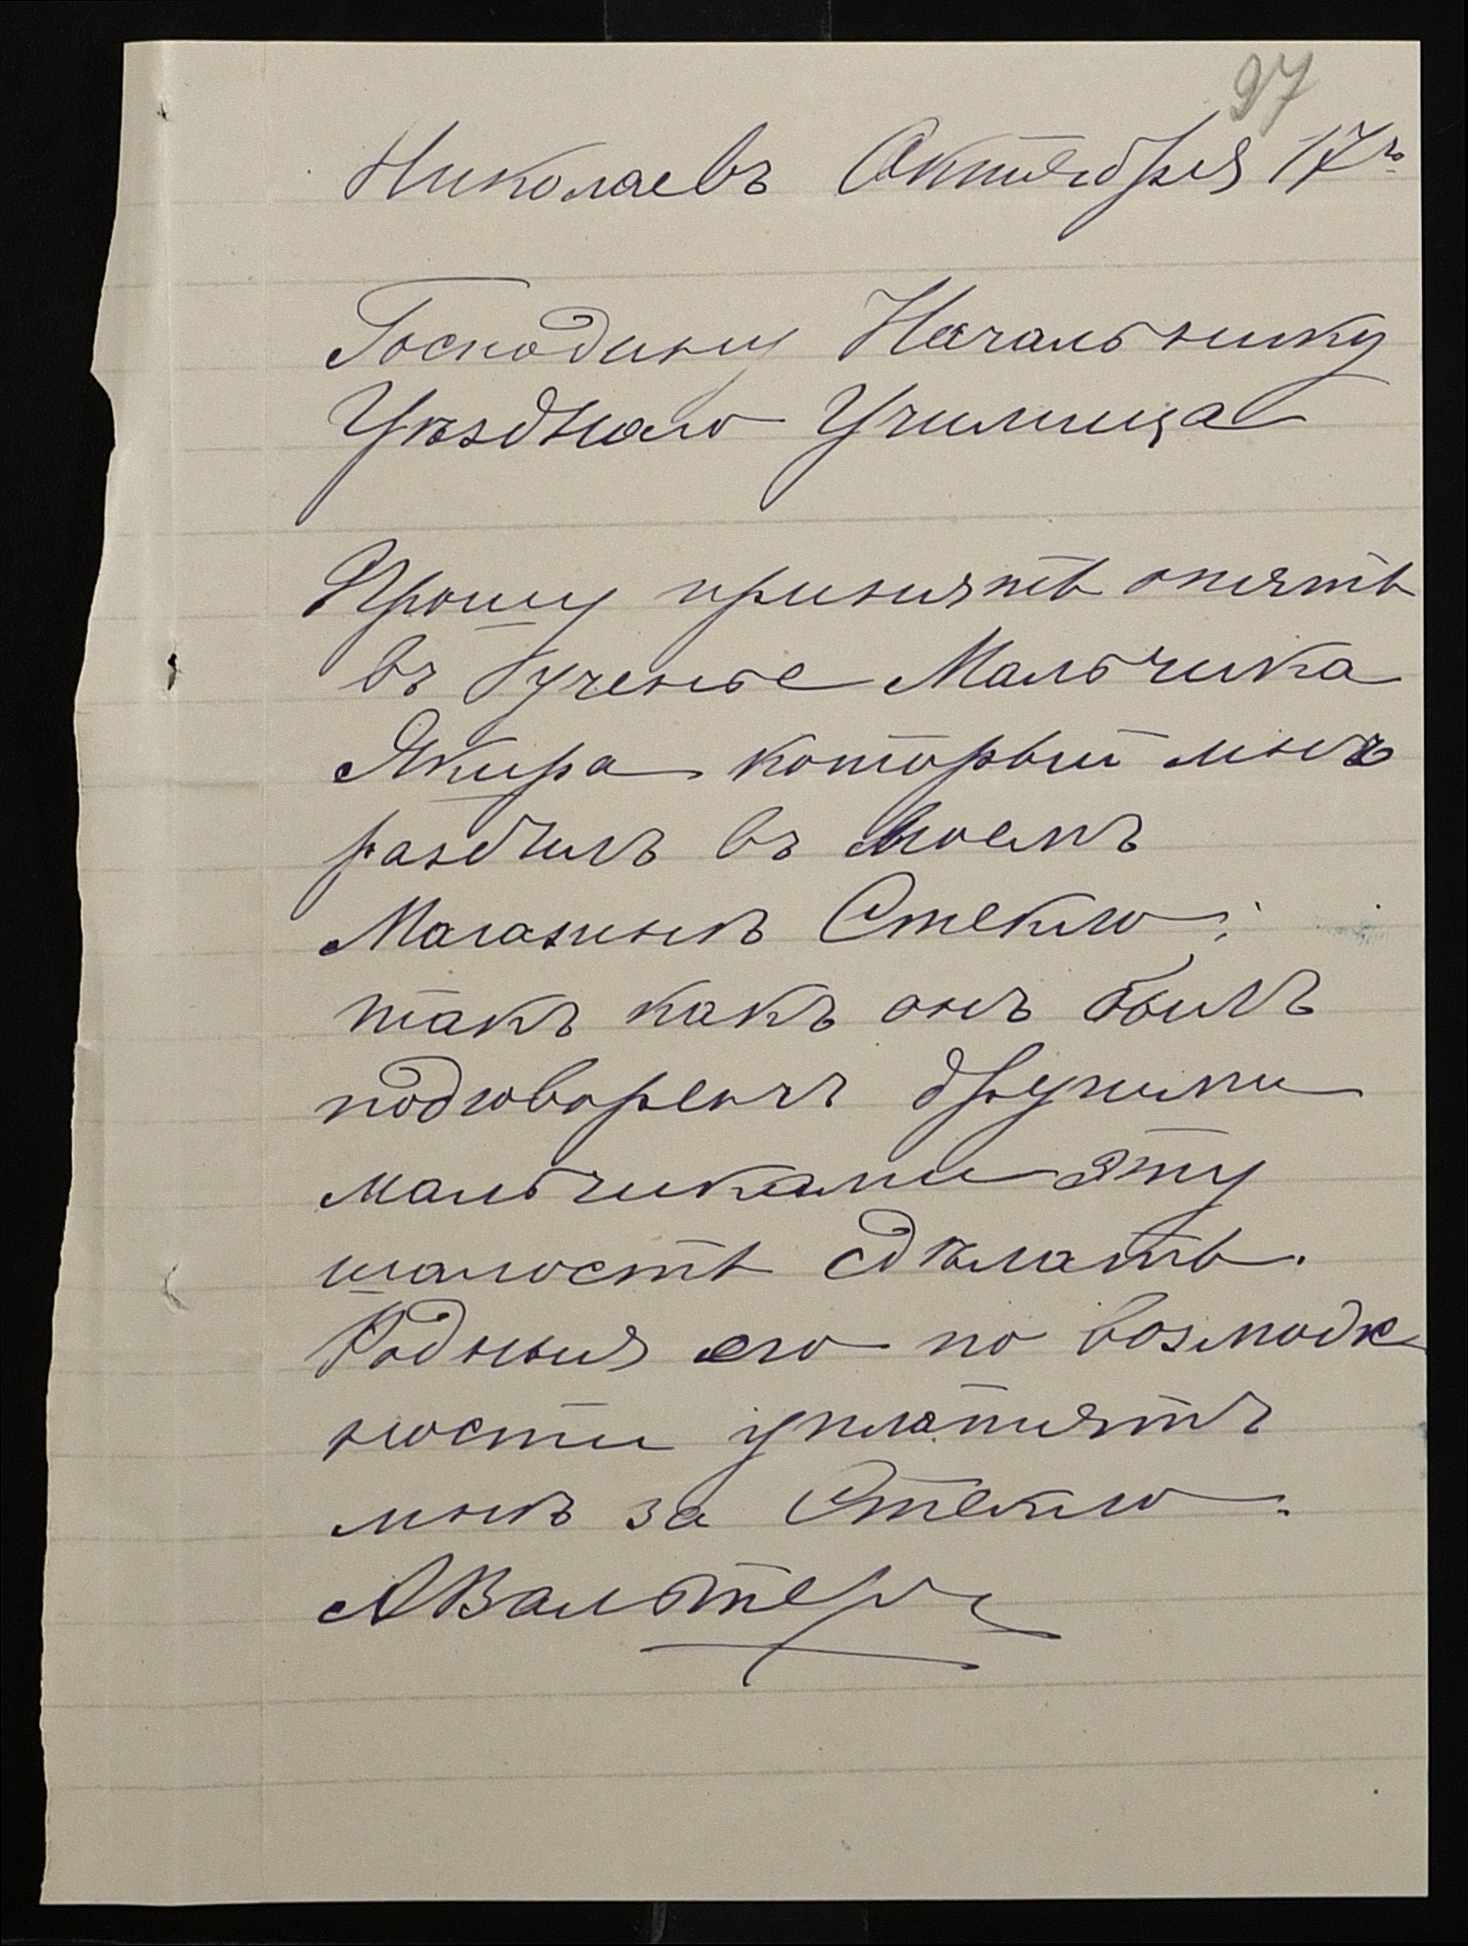 97
Николаевъ Октября 17го
Господину Начальнику
Уѣзднаго Училища
Прошу принять опять
въ ученье Мальчика
Якира который мнѣ
разбилъ въ моемъ
Магазинѣ Стекло;
такъ какъ онъ былъ
подговоренъ другими
мальчиками эту
шалость сдѣлать.
Родныя его по возмож
ности уплатятъ
мнѣ за Стекло.
АВальтеръ